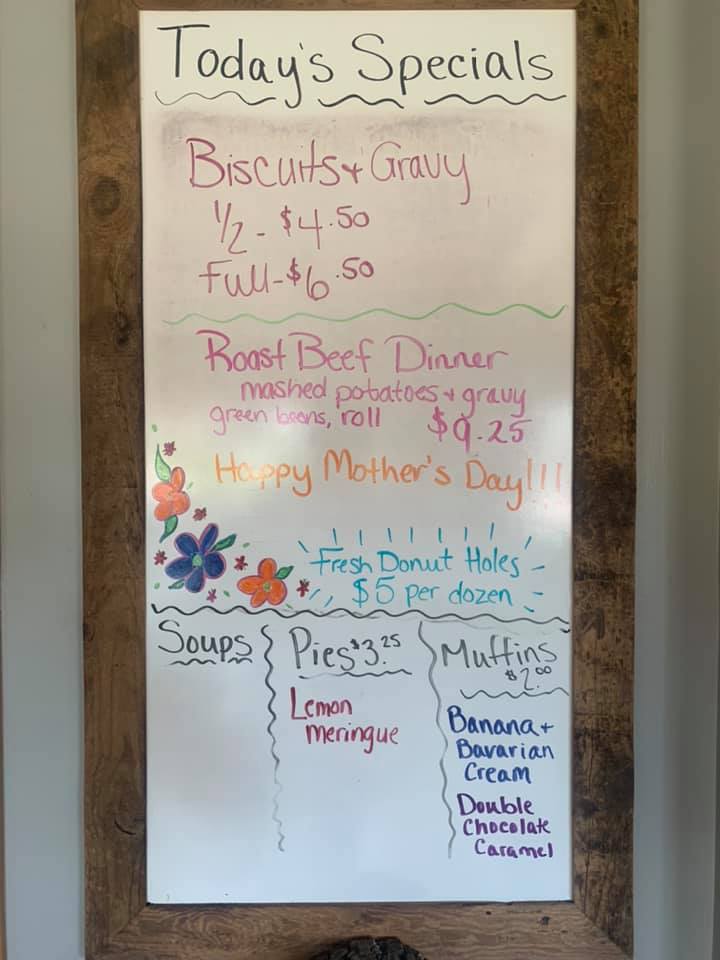 Today's Specials
Biscuits + Gravy
1/2 - $4.50
Full - $6.50
Roast Beef Dinner
mashed potatoes + gravy
green beans, roll $9.25
Happy Mother's Day!!!
Fresh Donut Holes
$5 per dozen
Soups
Pies $3.25
Lemon
Meringue
Muffins
$2.00
Banana +
Bavarian
Cream
Double
Chocolate
Caramel